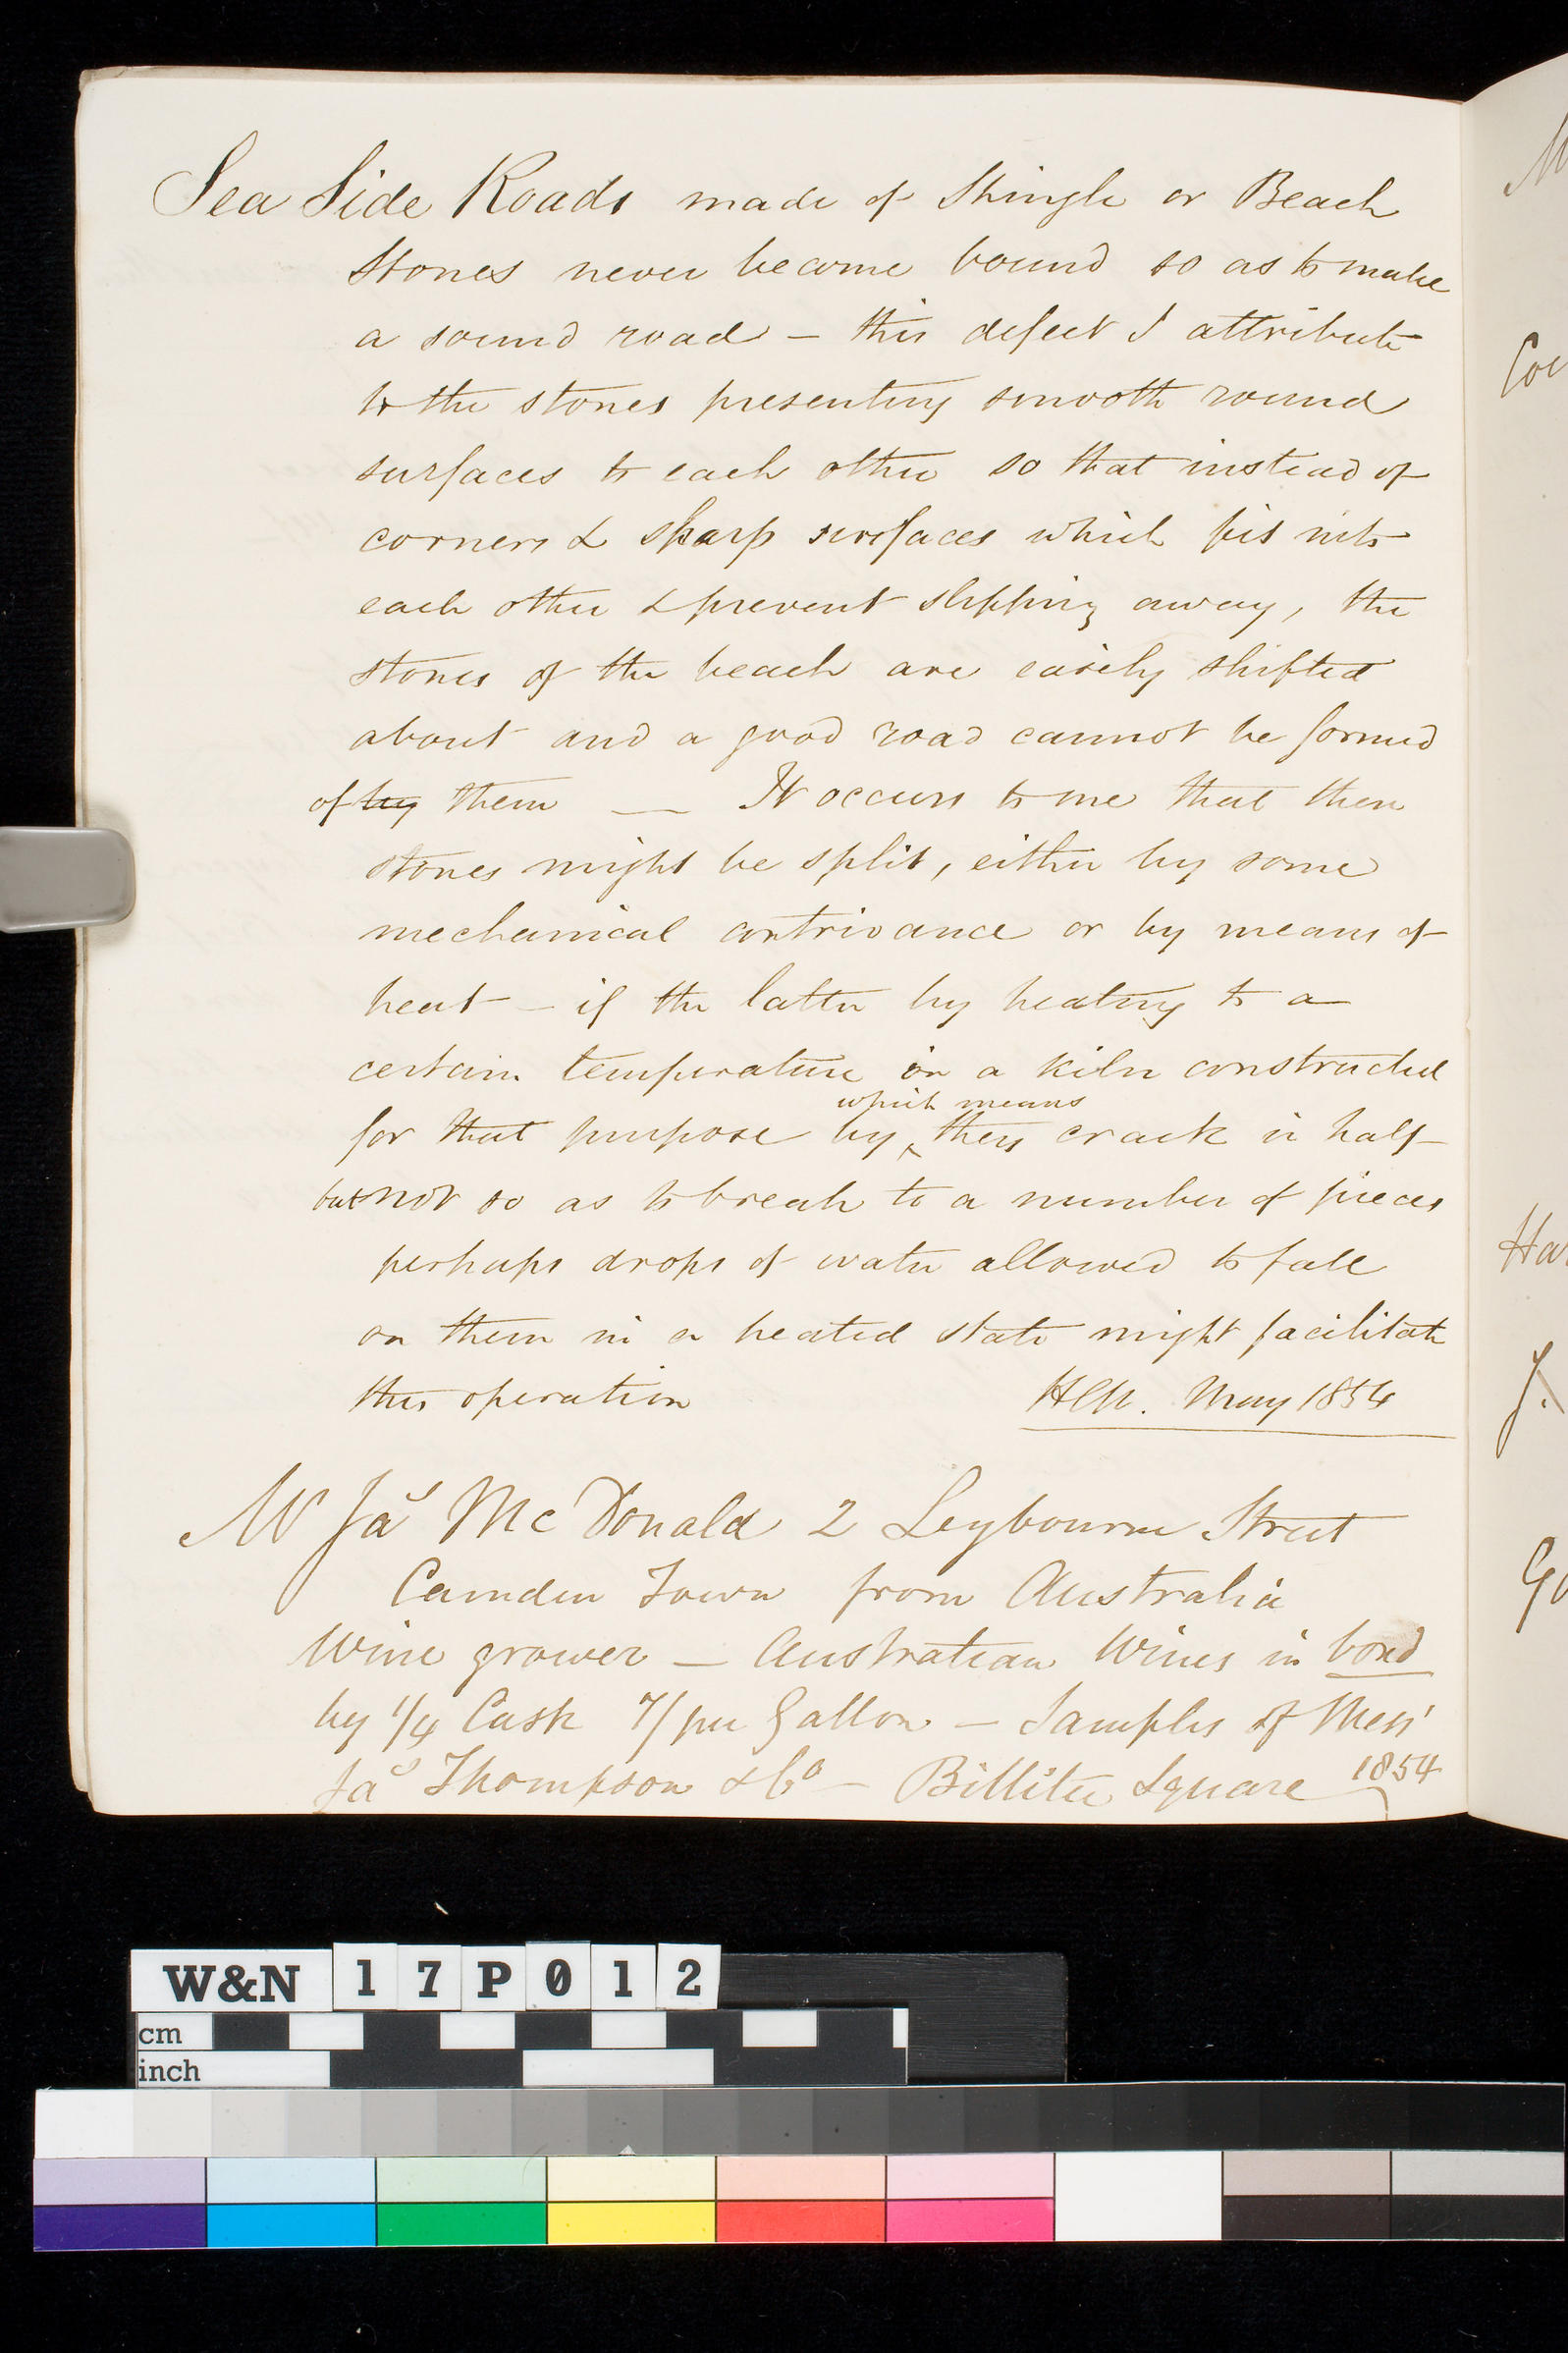 Sea Side Roads made of Shingle or Beach
Stones never become bound so as to make
a sound road — this defect I attribute
to the stones presenting smooth round
surfaces to each other so that instead of
corners & sharp surfaces which fit into
each other & prevent slipping away, the
stones of the beach are easily shifted
about and a good road cannot be formed
of by them — It occurs to me that these
stones might be split, either by some
mechanical contrivance or by means of
heat — if the latter by heating to a
certain temperature in a kiln constructed
which means
for that purpose by they crack in half
but not so as to break to a number of pieces
perhaps drops of water allowed to fall
on them in a heated state might facilitate
this operation
HCN. May 1854
Mr Jas McDonald 2 Leybourne Street
Camden Town from Australia
Wine grower — Australian Wines in bond
by 1/4 Cask 7/ per Gallon — Samples of Messrs
Jas Thompson & Co — Billiter Square 1854
M
Cou
Ha
J.
Go
W&N 17P012
cm
inch